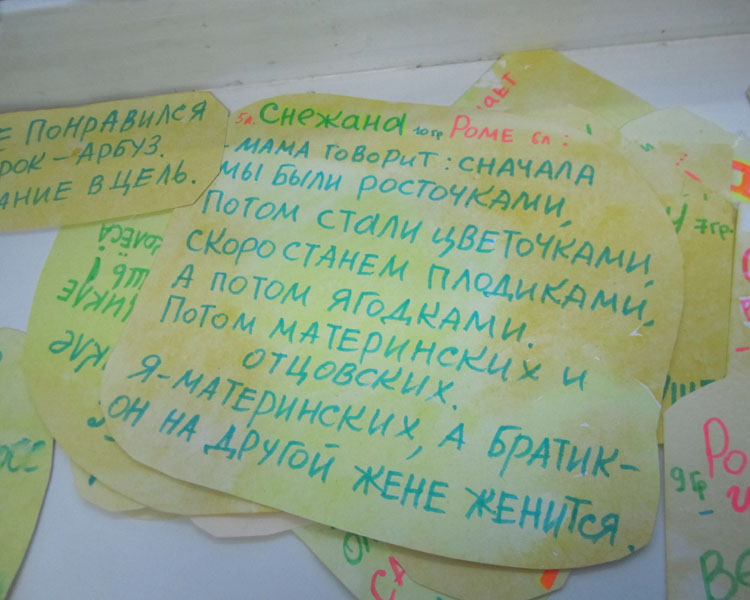 Е ПОНРАВИЛСЯ
РОК - АРБУЗ.
АНИЕ В ЦЕЛЬ.
5л. Снежана 10гр Роме 6л:
- МАМА ГОВОРИТ: СНАЧАЛА
МЫ БЫЛИ РОСТОЧКАМИ,
ПОТОМ СТАЛИ ЦВЕТОЧКАМИ,
СКОРО СТАНЕМ ПЛОДИКАМИ,
А ПОТОМ ЯГОДКАМИ.
ПОТОМ МАТЕРИНСКИХ И
ОТЦОВСКИХ.
Я - МАТЕРИНСКИХ, А БРАТИК -
ОН НА ДРУГОЙ ЖЕНЕ ЖЕНИТСЯ.
7гр.
Ро
9гр
Ве